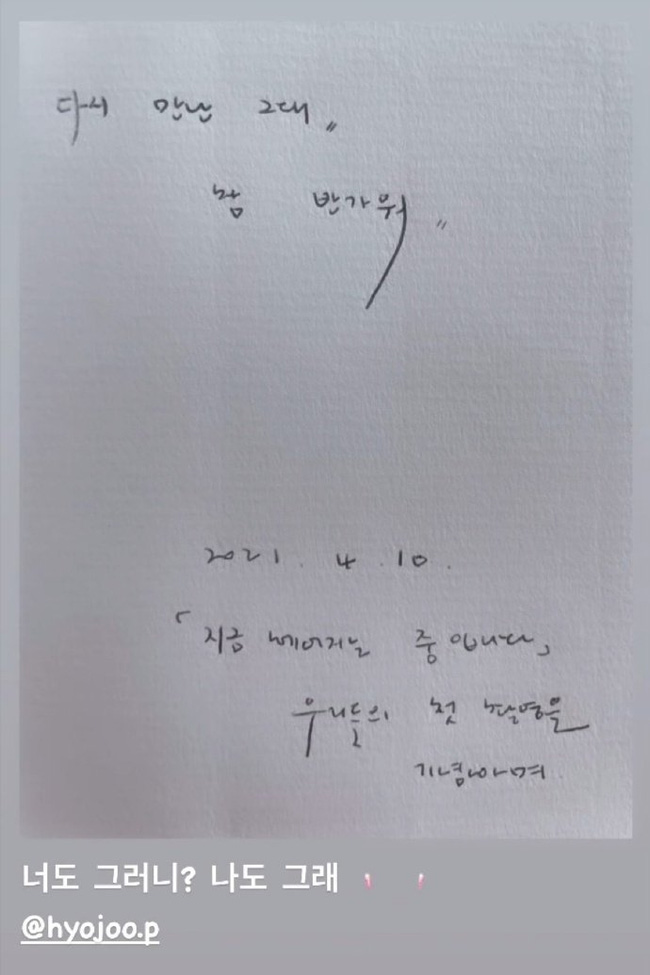 다시 만난 그대 〃
참 반가워 〃
2021. 4. 10.
「지금 헤어지는 중입니다」
우리들의 첫 촬영을
기념하며
너도 그러니? 나도 그래
@hyojoo.p